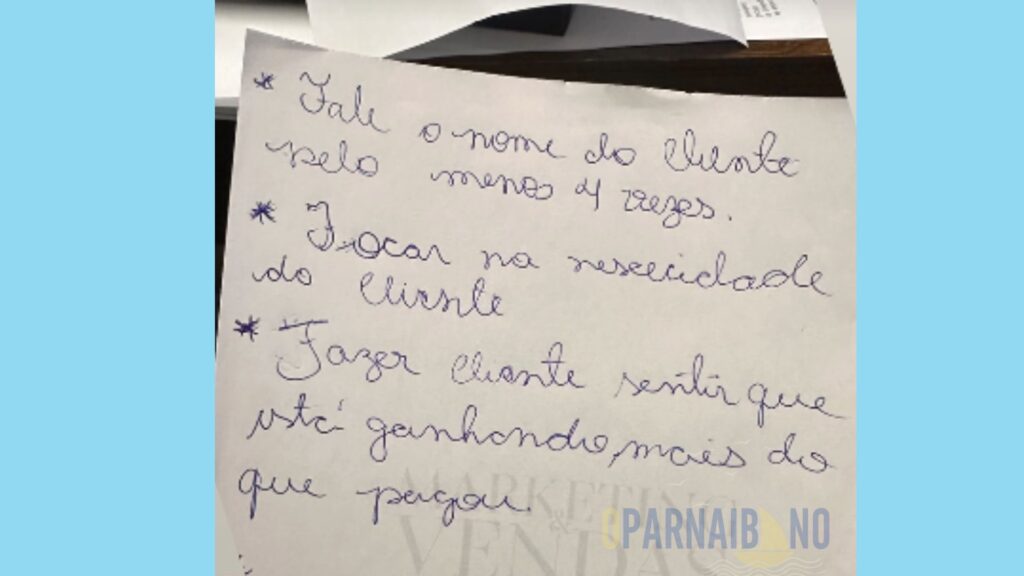 * Fale o nome do cliente
pelo menos 4 vezes.
* Focar na nescecidade
do cliente
* Fazer cliente sentir que
está ganhando, mais do
que pagou.
MARKETING
&
VENDAS
OPARNAIBANO